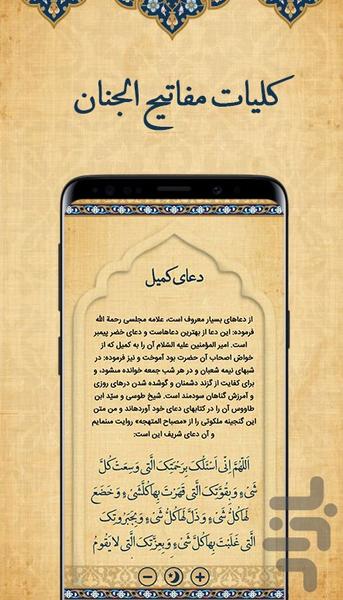 کلیات مفاتیح الجنان
دعای کمیل
از دعاهای بسیار معروف است، علامه مجلسی رحمة الله
فرموده: این دعا از بهترین دعاهاست و دعای خضر پیمبر
است. امیر المؤمنین علیه السّلام آن را به کمیل که از
خواصّ اصحاب آن حضرت بود آموخت و نیز فرموده: در
شبهای نیمه شعبان و در هر شب جمعه خوانده میشود، و
برای کفایت از گزند دشمنان و گشوده شدن درهای روزی
و آمرزش گناهان سودمند است. شیخ طوسی و سیّد ابن
طاووس آن را در کتابهای دعای خود آوردهاند و من متن
این گنجینه ملکوتی را از «مصباح المتهجه» روایت مینمایم
و آن دعای شریف این است:
اَللّهُمَّ اِنّى اَسْئَلُكَ بِرَحْمَتِكَ الَّتى وَسِعَتْ كُلَّ
شَىْءٍ وَ بِقُوَّتِكَ الَّتى قَهَرْتَ بِها كُلَّشَىْءٍ وَ خَضَعَ
لَها كُلُّ شَىءٍ وَ ذَلَّ لَها كُلُّ شَىْءٍ وَ بِجَبَرُوتِكَ
الَّتى غَلَبْتَ بِها كُلَّ شَىْءٍ وَ بِعِزَّتِكَ الَّتى لا يَقُومُ
بازار